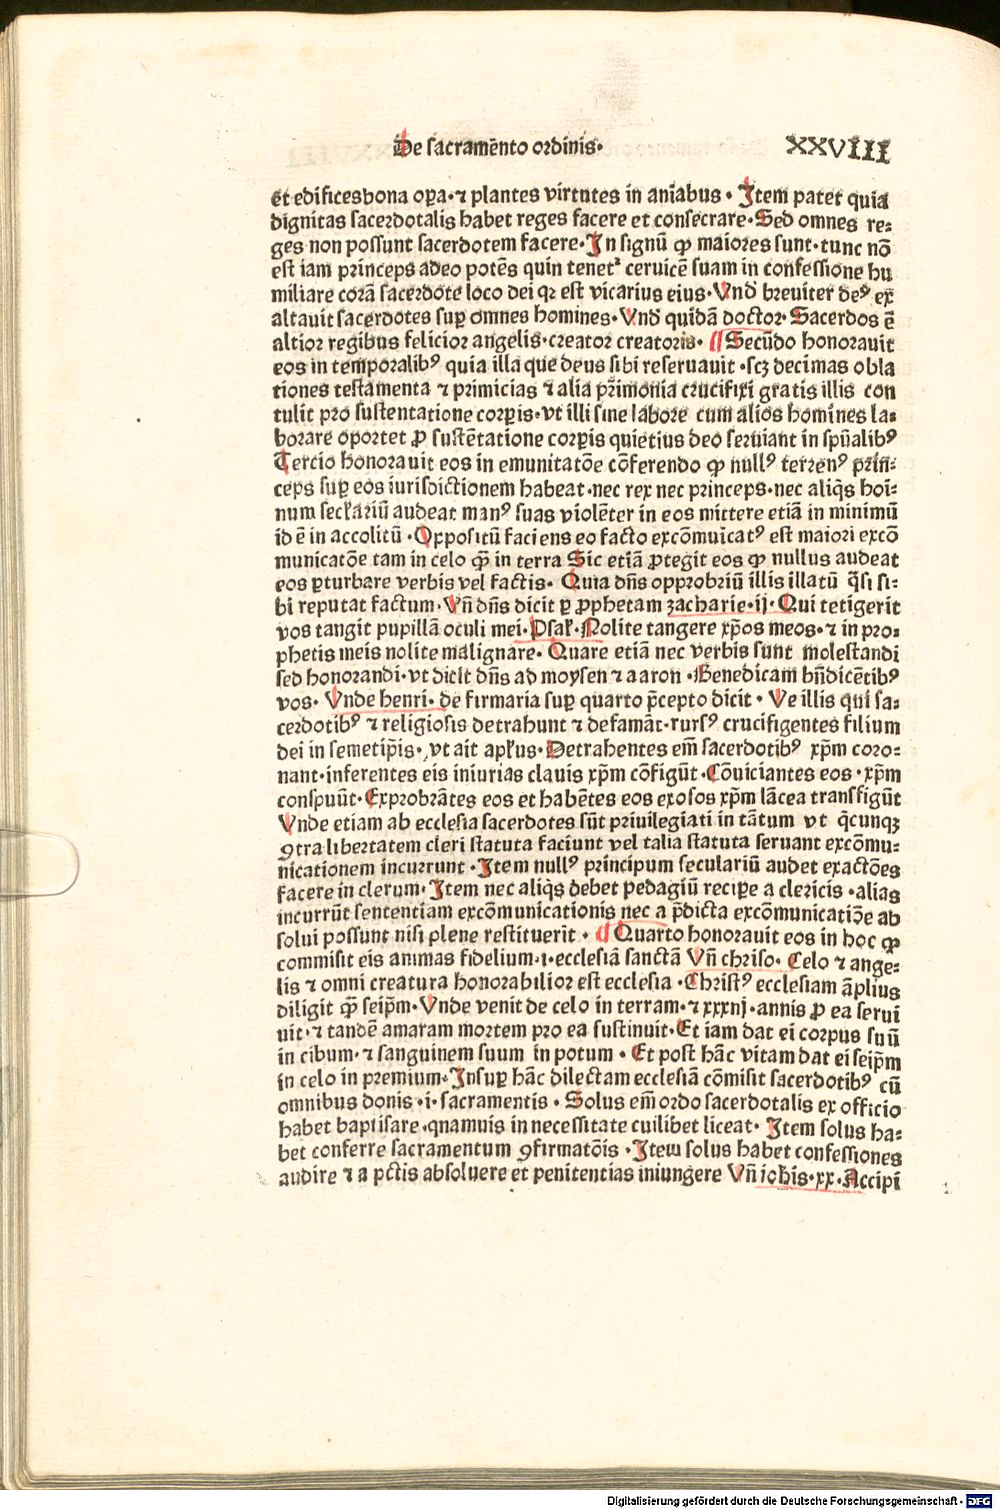 De sacramēto ordinis· XXVIII
et edificesbona oꝑa·⁊ plantes virtutes in aniabus · Item patet quia
dignitas sacerdotalis habet reges facere et consecrare·Sed omnes re⸗
ges non possunt sacerdotem facere·In signū ꝙ maiores sunt·tunc nō
est iam princeps adeo potēs quin tenet᷑ ceruicē suam in confessione hu
miliare corā sacerdote loco dei qꝛ est vicarius eius·Vnd breuiter deꝰ ex
altauit sacerdotes suꝑ omnes homines·Vnd quidā doctor·Sacerdos ē
altior regibus felicior angelis·creator creatoris· ¶ Secūdo honorauit
eos in temporalibꝰ quia illa que deus sibi reseruauit ·scꝫ decimas obla
tiones testamenta ⁊ primicias ⁊ alia pr̄imonia crucifixi gratis illis con
tulit pro sustentatione corꝑis·vt illi sine labore cum alios homines la⸗
borare oportet ꝓ sustētatione corꝑis quietius deo seruiant in spūalibꝰ
Tercio honorauit eos in emunitatōe cōferendo ꝙ nullꝰ terrenꝰ prin⸗
ceps suꝑ eos iurisdictionem habeat·nec rex nec princeps·nec aliq̄s hoī⸗
num seclariū audeat manꝰ suas violēter in eos mittere etiā in minimū
id ē in accolitū ·Oppositū faciens eo facto excōmuicatꝰ est maiori excō
municatōe tam in celo q̄ꝫ in terra Sic etiā ꝓtegit eos ꝙ nullus audeat
eos ꝑturbare verbis vel factis· Quia dn̄s opprobriū illis illatū q̄si si⸗
bi reputat factum·Vn̄ dn̄s dicit ꝑ ꝓphetam zacharie·ij·Qui tetigerit
vos tangit pupillā oculi mei·Psal·Nolite tangere xp̄os meos·⁊ in pro⸗
phetis meis nolite malignare· Quare etiā nec verbis sunt molestandi
sed honorandi·vt dicit dn̄s ad moysen ⁊ aaron ·Benedicam bn̄dicētibꝰ
vos· Vnde henri· de firmaria suꝑ quarto p̄cepto dicit · Ve illis qui sa⸗
cerdotibꝰ ⁊ religiosis detrahunt ⁊ defamāt·rursꝰ crucifigentes filium
dei in semetip̄is·,vt ait aplus·Detrahentes em̄ sacerdotibꝰ xp̄m coro⸗
nant·inferentes eis iniurias clauis xp̄m cōfigūt·Cōuiciantes eos·xp̄m
conspuūt·Exprobrātes eos et habētes eos exosos xp̄m lācea transfigūt
Vnde etiam ab ecclesia sacerdotes sūt priuilegiati in tātum vt q̄cunqꝫ
ꝯtra libertatem cleri statuta faciunt vel talia statuta seruant excōmu⸗
nicationem incurrunt ·Item nullꝰ principum seculariū audet exactōes
facere in clerum·Item nec aliq̄s debet pedagiū reciꝑe a clericis ·alias
incurrūt sententiam excōmunicationis nec a p̄dicta excōmunicatiōe ab
solui possunt nisi plene restituerit · ¶ Quarto honorauit eos in hoc ꝙ
commisit eis animas fidelium·i·ecclesiā sanctā Vn̄ chriso· Celo ⁊ ange⸗
lis ⁊ omni creatura honorabilior est ecclesia ·Christꝰ ecclesiam āplius
diligit q̄ꝫ seip̄m·Vnde venit de celo in terram·⁊ xxxnj·annis ꝓ ea serui
uit·⁊ tandē amaram mortem pro ea sustinuit·Et iam dat ei corpus suū
in cibum·⁊ sanguinem suum in potum · Et post hāc vitam dat ei seip̄m
in celo in premium·Insuꝑ hāc dilectam ecclesiā cōmisit sacerdotibꝰ cū
omnibus donis ·i·sacramentis · Solus em̄ ordo sacerdotalis ex officio
habet baptisare ·qnamuis in necessitate cuilibet liceat· Item solus ha⸗
bet conferre sacramentum ꝯfirmatōis ·Item solus habet confessiones
audire ⁊ a pctīs absoluere et penitentias iniungere Vn̄ iohis·xx·Accipi
Digitalisierung gefördert durch die Deutsche Forschungsgemeinschaft - DFG